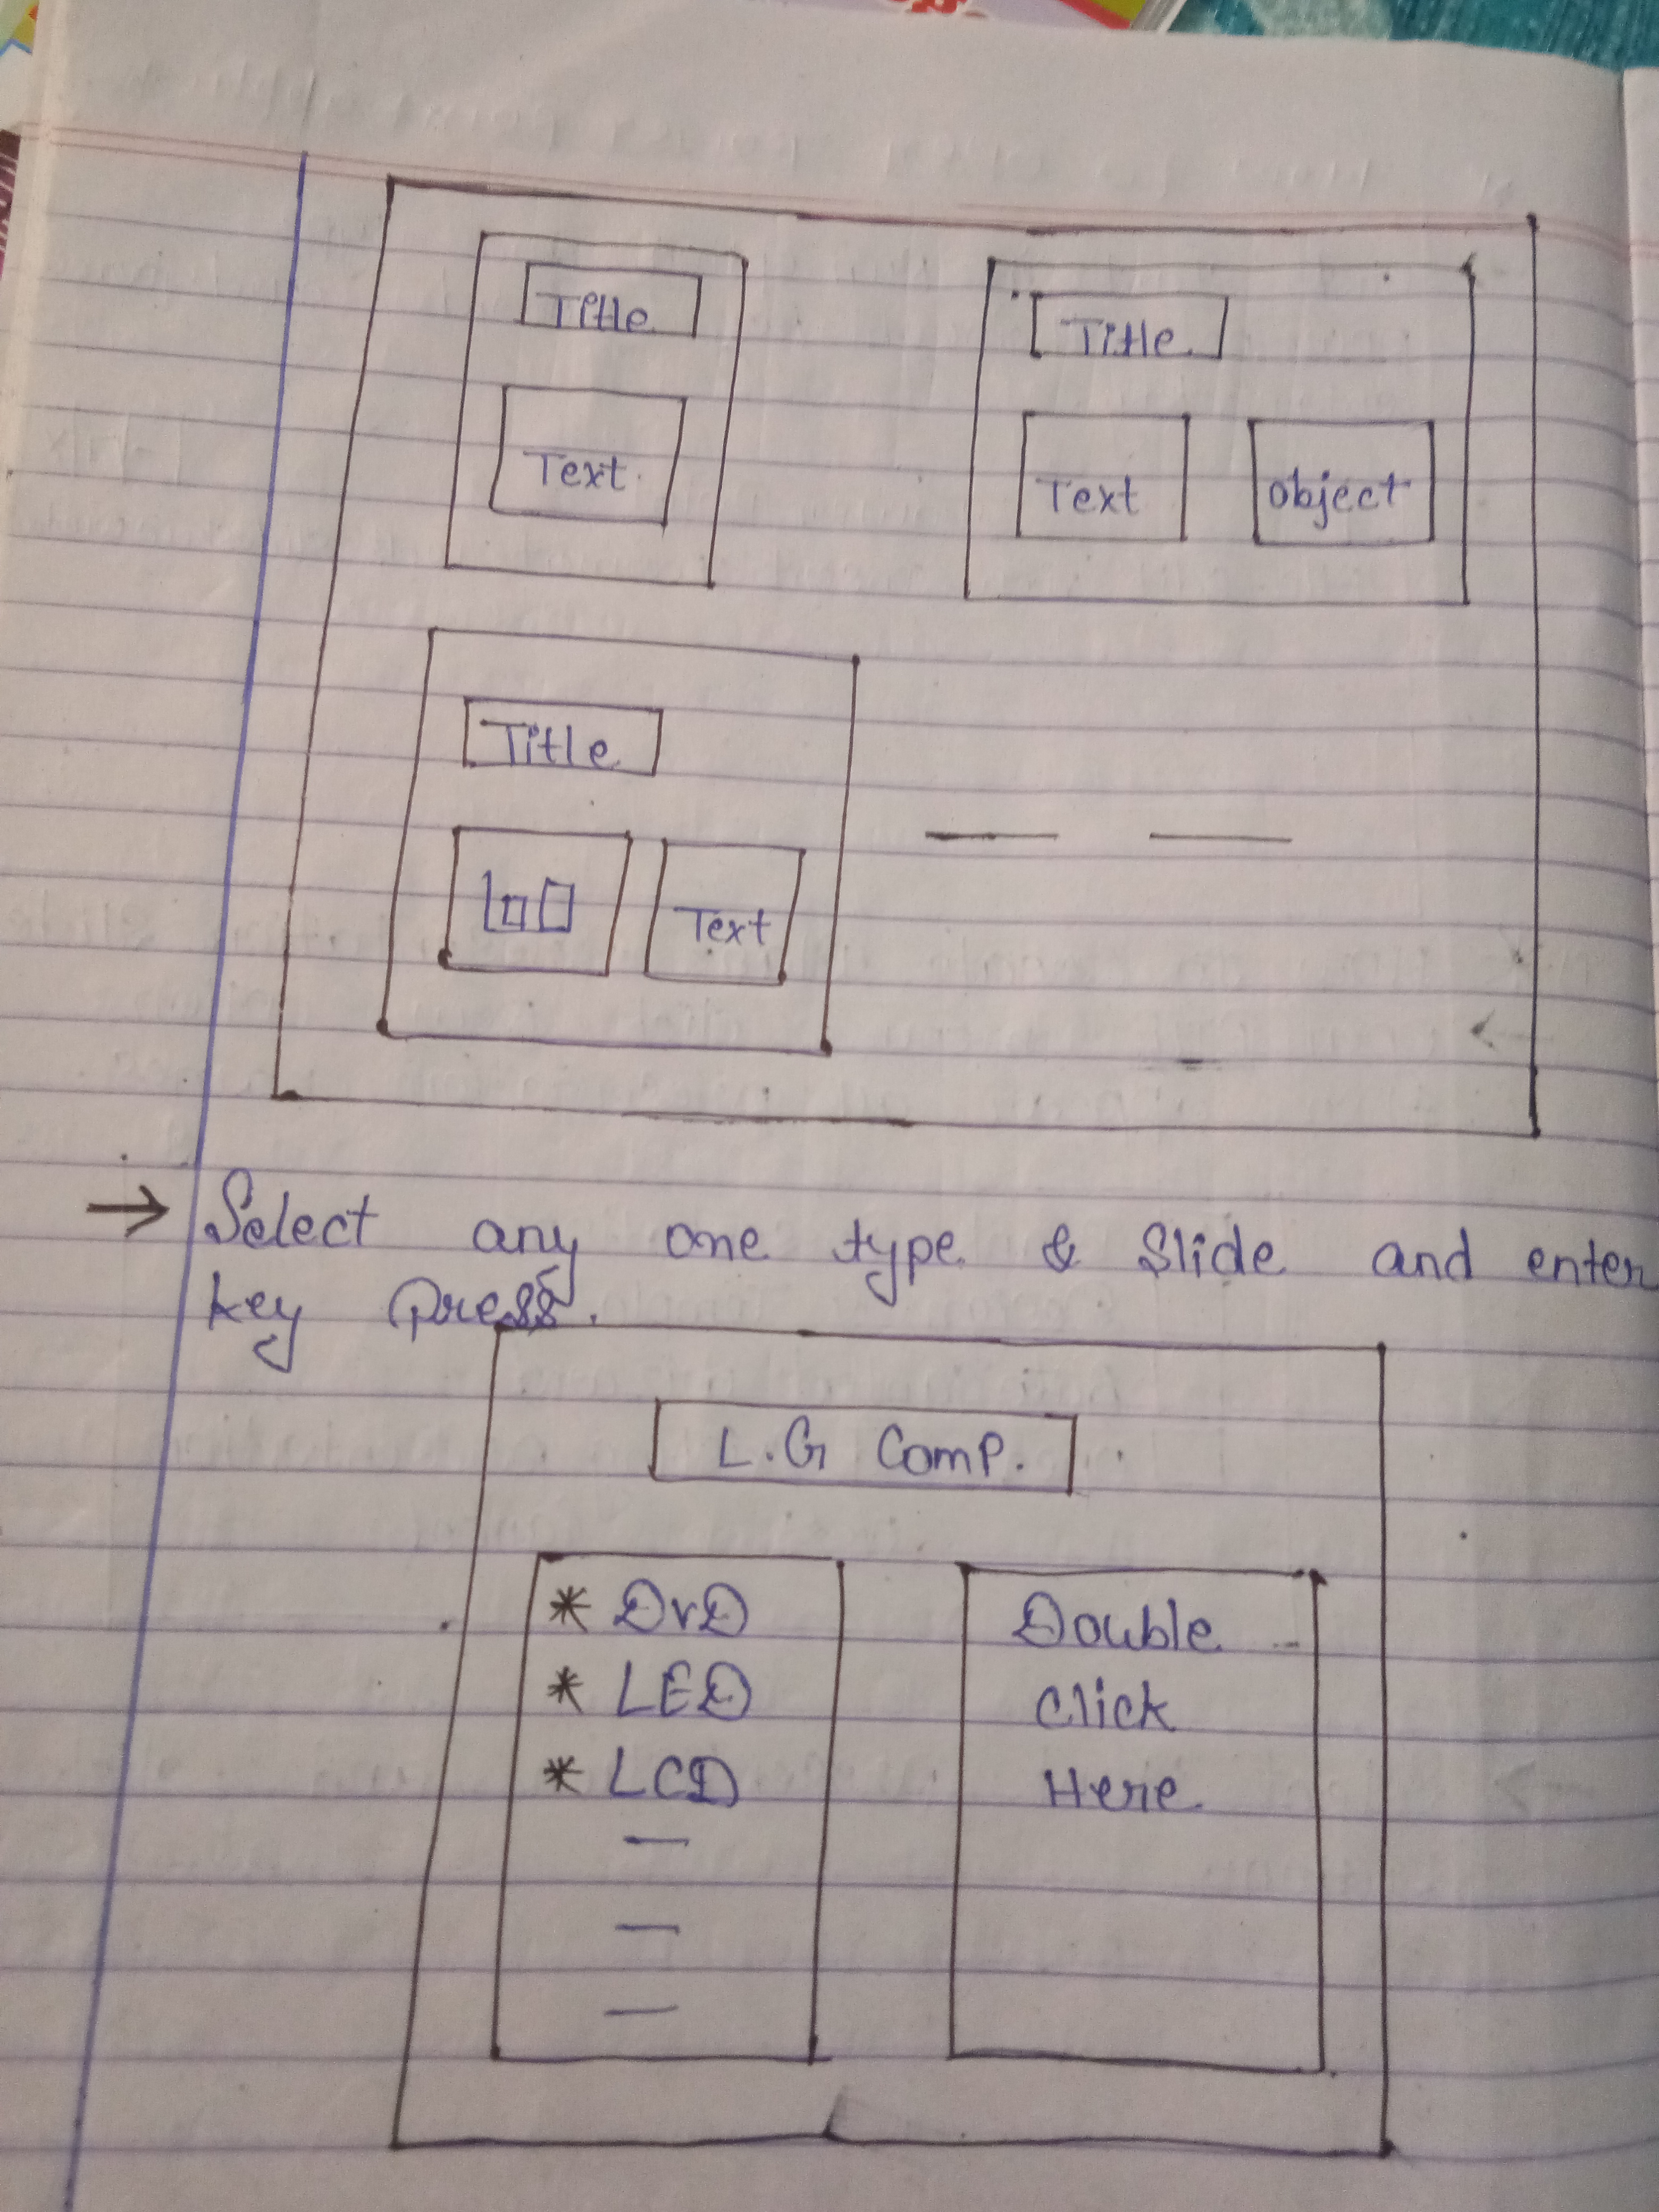 Title
Title
Text
Text
object
Title
Text
→ Select any one type & Slide and enter
key press.
L.G Comp.
* DVD
* LED
* LCD
Double
Click
Here